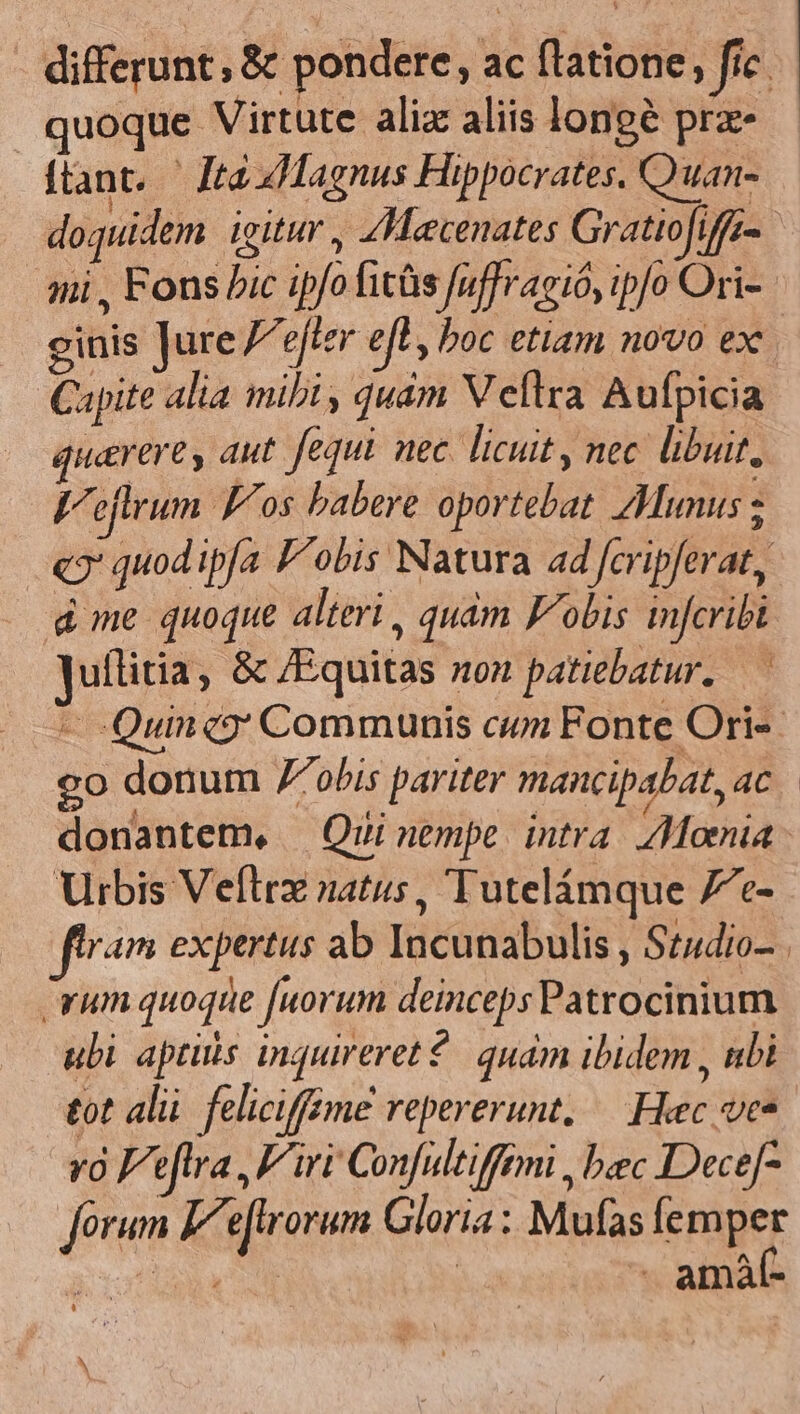 differunt, & pondere, ac ſtatione, ſic
quoque Virtute aliæ aliis longè præ-
ſtant. Ità Magnus Hippocrates. Quan-
doquidem igitur, Mæcenates Gratioſiſſi-
mi, Fons hic ipſo ſitûs ſuffragió, ipſo Ori-
ginis Jure Veſter eſt, hoc etiam novo ex
Capite alia mihi, quàm Veſtra Auſpicia
quærere, aut ſequi nec licuit, nec libuit.
Veſtrum Vos habere oportebat Munus;
& quod ipſa Vobis Natura adſcripſerat,
à me quoque alteri, quàm Vobis inſcribi
Juſtitia, & Æquitas non patiebatur.
Quin & Communis cum Fonte Ori-
go donum Vobis pariter mancipabat, ac
donantem. Qui nempe intra Mœnia
Urbis Veſtræ natus, Tutelámque Ve-
ſtram expertus ab Incunabulis, Studio-
rum quoque ſuorum deinceps Patrocinium
ubi aptiùs inquireret? quàm ibidem, ubi
tot alii feliciſſimè repererunt. Hæc ve-
rò Veſtra, Viri Conſultiſſimi, hæc Deceſ-
ſorum Veſtrorum Gloria: Muſas ſemper
amàſ-